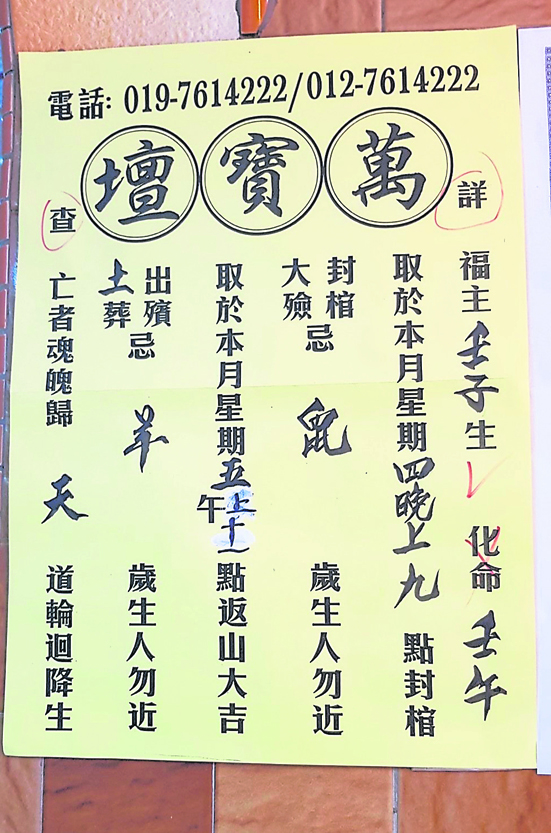 電話: 019-7614222/012-7614222
萬寶壇
詳
福主壬子生 化命壬午
取於本月星期四晚上九點封棺
封棺大殮忌鼠歲生人勿近
取於本月星期五上午十一點返山大吉
出殯土葬忌羊歲生人勿近
查
亡者魂魄歸天道輪迴降生